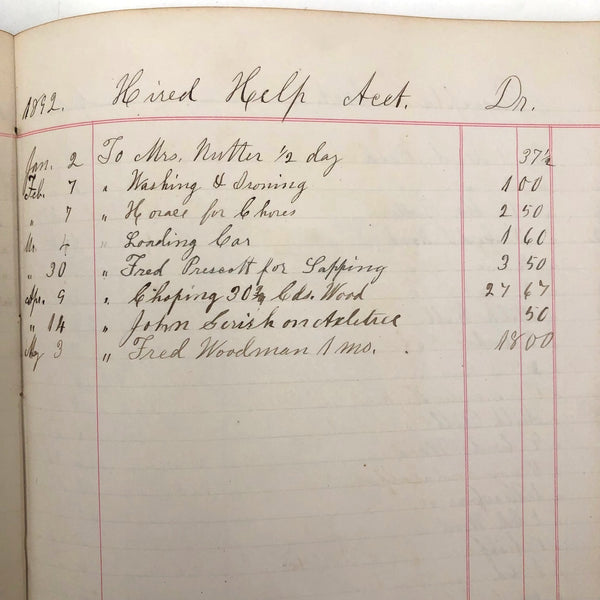 1892. Hired Help Acct. Dr.
Jan. 2 To Mrs. Nutter 1/2 day 37 1/2
Feb. 7 " Washing & Ironing 1 00
" 7 " Horace for Chores 2 50
" Loading Car 1 60
" 30 " Fred Prescott for Sapping 3 50
Apr. 9 " Choping 30 3/4 Cds. Wood 27 67
" 14 " John on Axletree 50
May 3 " Fred Woodman 1 mo. 18 00